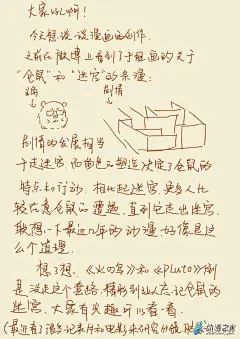 大家好啊!
今天想谈一谈漫画的创作.
之前在微博上看到了于彦画的关于
"仓鼠"和"迷宫"的条漫:
主角
剧情
剧情的发展相当
于走迷宫,而角色的塑造决定了仓鼠的
特点和行动.相比起迷宫,更多人比
较在意仓鼠的遭遇,直到它走出迷宫.
联想一下最近几年的动漫好像是这
么个道理.
想了想,《火の鸟》和《Pluto》倒
是没走这个套路,精彩到让人忘记仓鼠的
迷宫.大家有兴趣可以看一看.
(最近看了很多记录片和电影来研究分镜
动漫之家